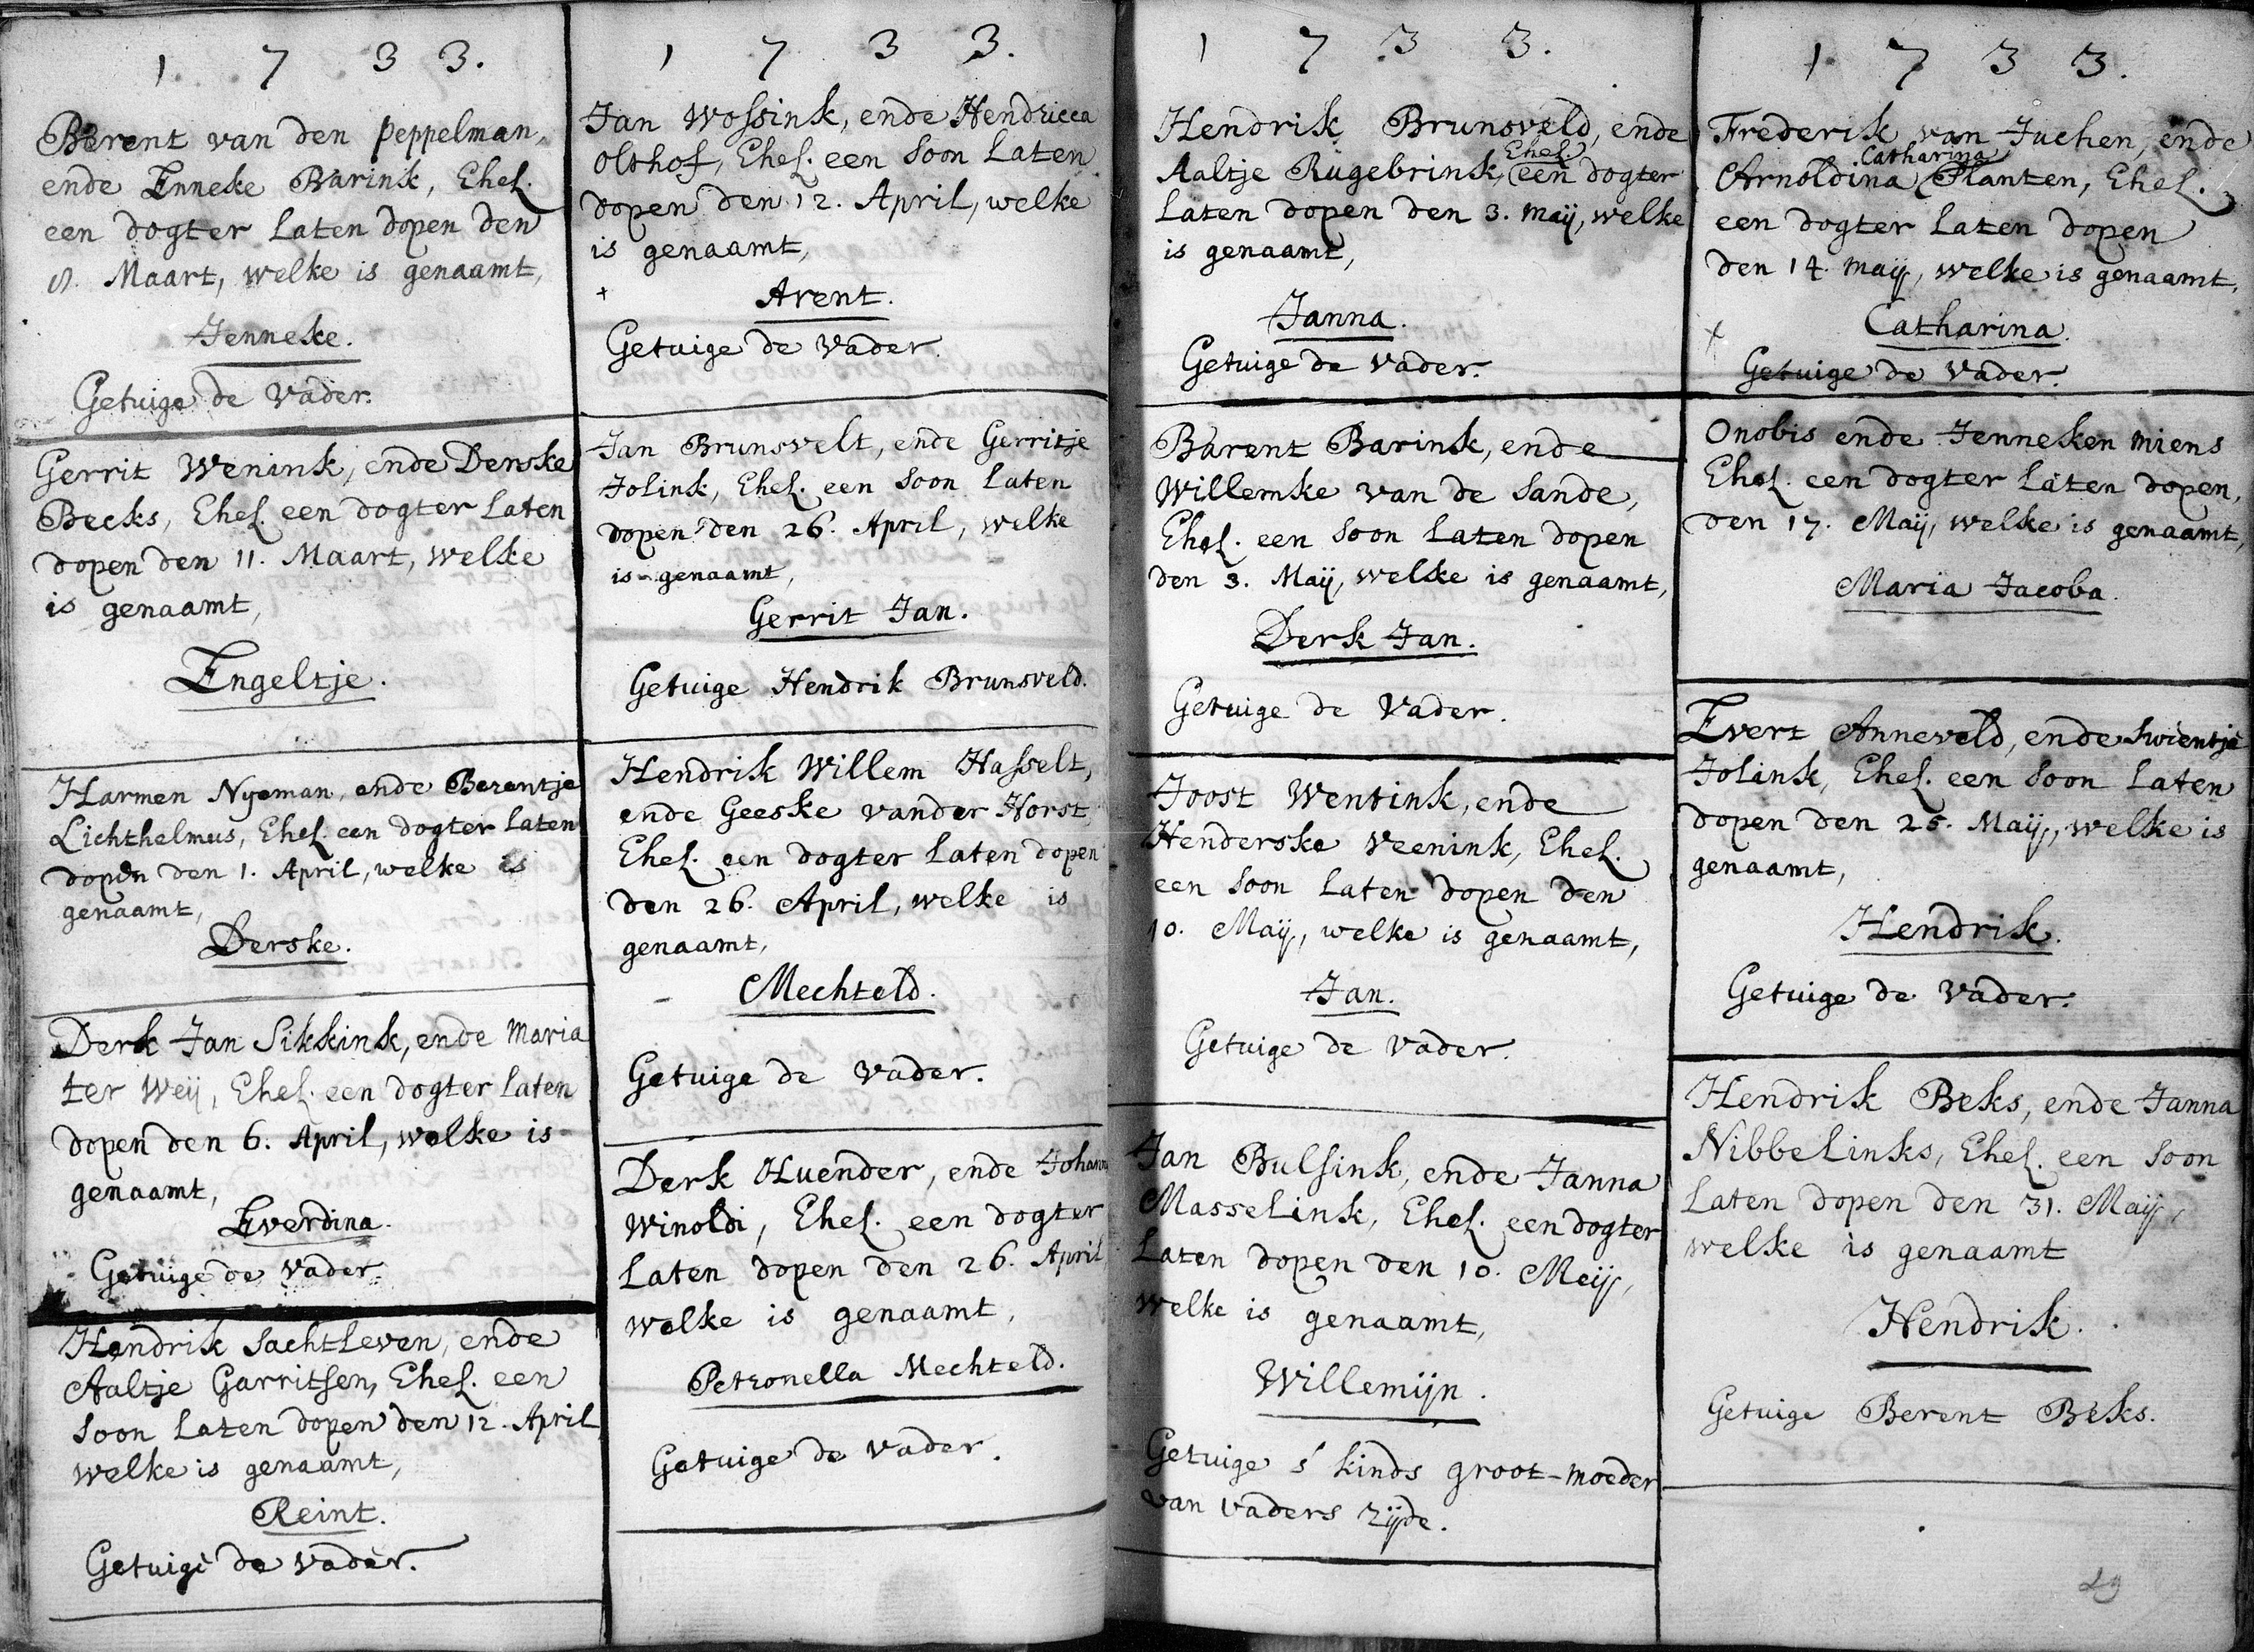 1 7 3 3.
Berent van den Peppelman,
ende Enneke Barink, Ehel.
een dogter Laten dopen den
8. Maart, welke is genaamt,
Jenneke.
Getuige de Vader.
Gerrit Wenink, ende Denske
Beeks, Ehel. een dogter Laten
dopen den 11. Maart, welke
is genaamt,
Engeltje.
Harmen Nyeman, ende Berentje
Lichthelmus, Ehel. een dogter Laten
dopen den 1. April, welke is
genaamt,
Derske.
Derk Jan Sikkink, ende Maria
ter Weij, Ehel. een dogter Laten
dopen den 6. April, welke is
genaamt,
Everdina.
Getuige de Vader.
Hendrik Sachtleven, ende
Aaltje Garritsen, Ehel. een
Soon Laten dopen den 12. April
welke is genaamt,
Reint.
Getuige de Vader.
1 7 3 3.
Jan Wossink, ende Hendricca
Olthof, Ehel. een Soon Laten
dopen den 12. April, welke
is genaamt,
+ Arent.
Getuige de Vader.
Jan Brunsvelt, ende Gerritje
Jolink, Ehel. een Soon Laten
dopen den 26. April, welke
is genaamt,
Gerrit Jan.
Getuige Hendrik Brunsveld.
Hendrik Willem Hasselt,
ende Geeske vander Horst,
Ehel. een dogter Laten dopen
den 26. April, welke is
genaamt,
Mechteld.
Getuige de Vader.
Derk Oluender, ende Johanna
Winoldi, Ehel. een dogter
Laten dopen den 26. April
welke is genaamt,
Petronella Mechteld.
Getuige de Vader.
1 7 3 3.
Hendrik Brunsveld, ende
Ehel.
Aaltje Rugebrink, een dogter
Laten dopen den 3. Maij, welke
is genaamt,
Janna.
Getuige de Vader.
Barent Barink, ende
Willemke van de Sande,
Ehel. een Soon Laten dopen
den 3. Maij, welke is genaamt,
Derk Jan.
Getuige de Vader.
Joost Wentink, ende
Henderske Veenink, Ehel.
een Soon Laten dopen den
10. Maij, welke is genaamt,
Jan.
Getuige de Vader.
Jan Bulsink, ende Janna
Masselink, Ehel. een dogter
Laten dopen den 10. Meij,
welke is genaamt,
Willemijn.
Getuige s' kinds groot-moeder
van vaders zijde.
1 7 3 3.
Frederik van Juchen, ende
Catharina
Arnoldina Planten, Ehel.
een dogter Laten dopen
den 14. Maij, welke is genaamt,
+ Catharina.
Getuige de Vader.
Onobis ende Jenneken Miens
Ehel. een dogter Laten dopen,
den 17. Maij, welke is genaamt,
Maria Jacoba.
Evert Anneveld, ende Swientje
Jolink, Ehel. een Soon Laten
dopen den 25. Maij, welke is
genaamt,
Hendrik.
Getuige de Vader.
Hendrik Beks, ende Janna
Nibbelinks, Ehel. een Soon
Laten dopen den 31. Maij,
welke is genaamt
Hendrik.
Getuige Berent Beks.